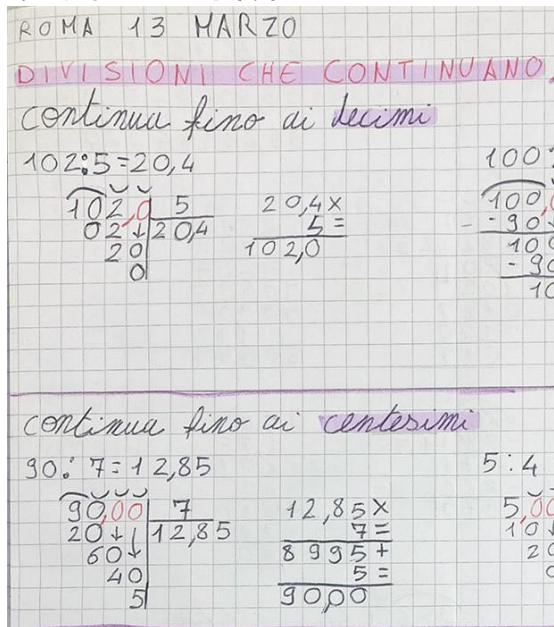 ROMA 13 MARZO
DIVISIONI CHE CONTINUANO
continua fino ai decimi
102:5=20,4
102,0 5
02 20,4
20
0
20,4 x
5 =
102,0
100:
100,0
-90
100
-90
10
continua fino ai centesimi
90:7=12,85
90,00 7
20 12,85
60
40
5
12,85 x
7 =
8995 +
5 =
90,00
5:4
5,00
10
20
0